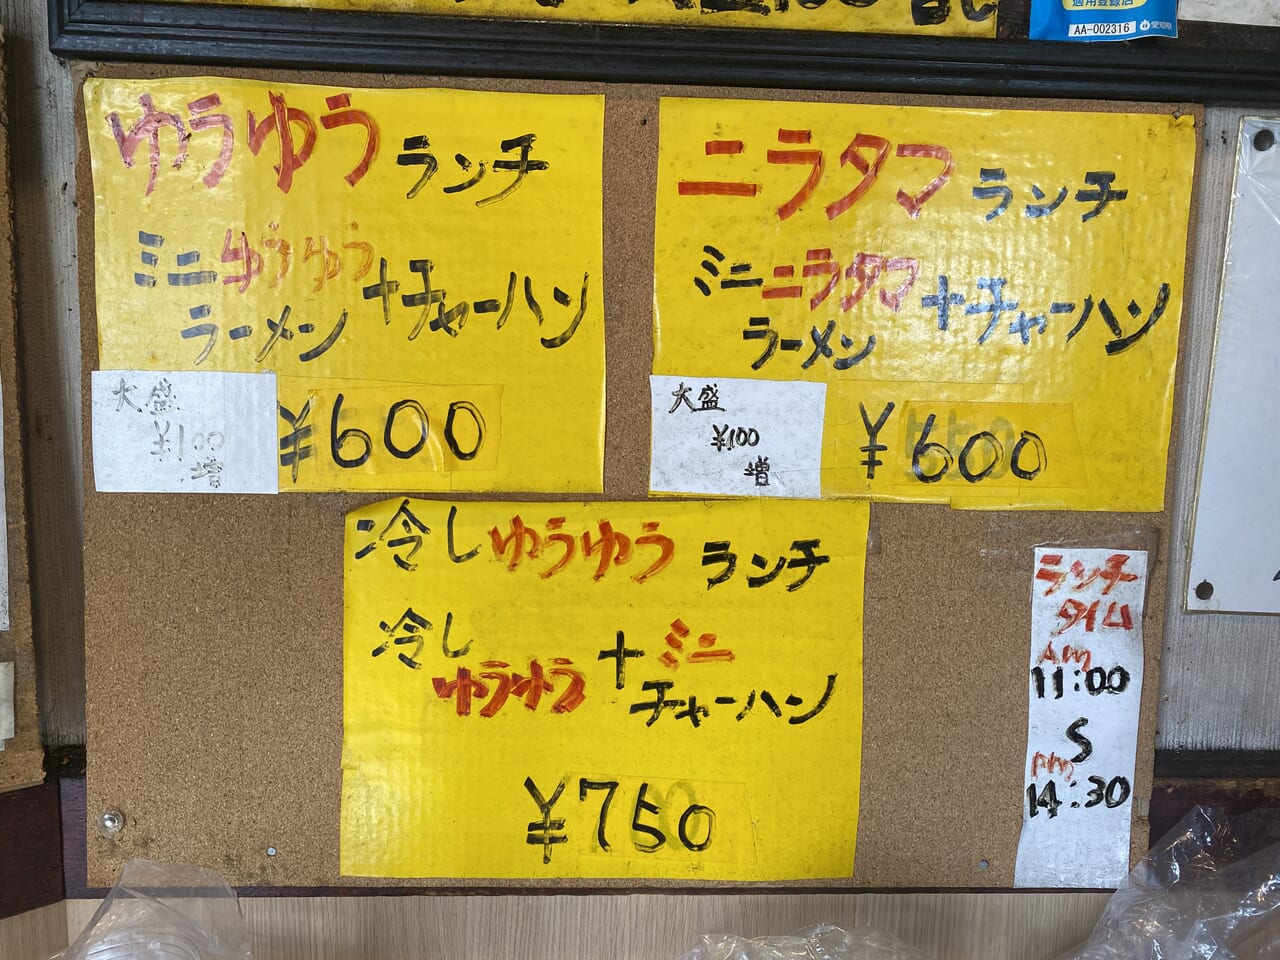 適用登録店
AA-002316
愛知県
ゆうゆうランチ
ミニゆうゆう
ラーメン
+チャーハン
大盛
¥100
増
¥600
ニラタマランチ
ミニニラタマ
ラーメン
+チャーハン
大盛
¥100
増
¥600
冷しゆうゆうランチ
冷し
ゆうゆう
+ミニ
チャーハン
¥750
ランチ
タイム
AM
11:00
S
PM
14:30